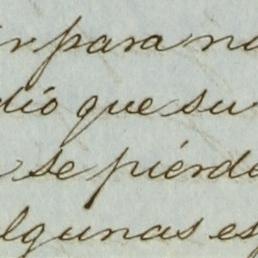 ir para no
dió que su
se piérde
algunas es